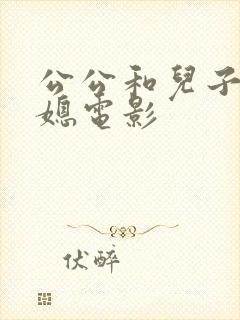 公公和兒子
媳電影
伏醉